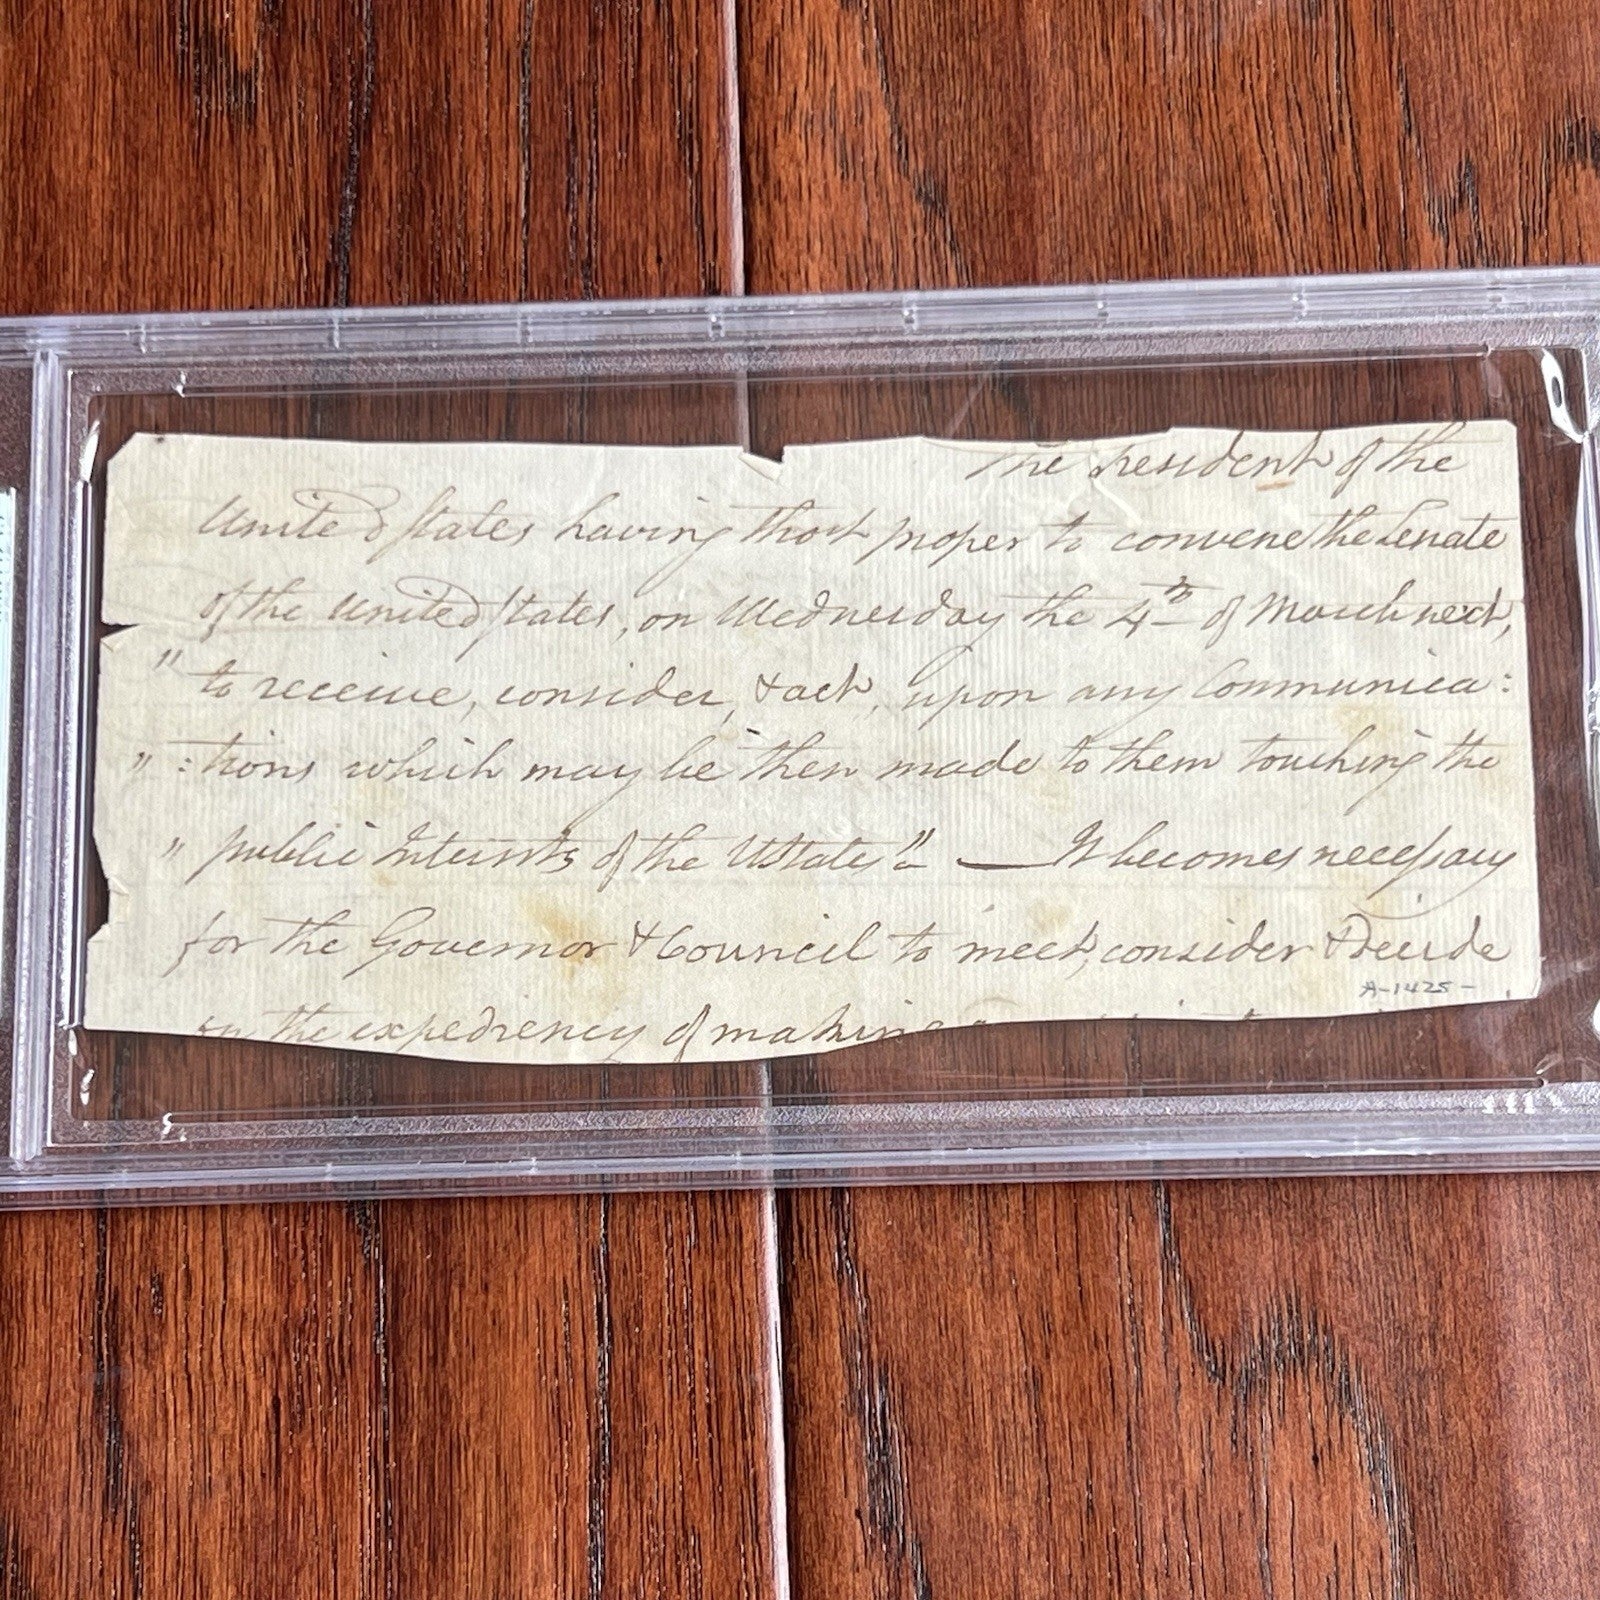 The President of the
United States having thot proper to convene the Senate
of the United States, on Wednesday the 4th of March next,
" to receive, consider, & act, upon any Communica:
" :tions which may be then made to them touching the
" public Interests of the UStates" — It becomes necessary
for the Governor & Council to meet, consider & decide
on the expediency of making
A-1425-